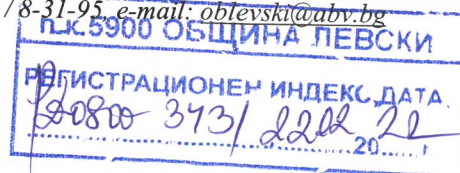 /8-31-95, e-mail: oblevski@abv.bg
п.к.5900 ОБЩИНА ЛЕВСКИ
РЕГИСТРАЦИОНЕН ИНДЕКС, ДАТА
0800 343/ 22 20 22 г.